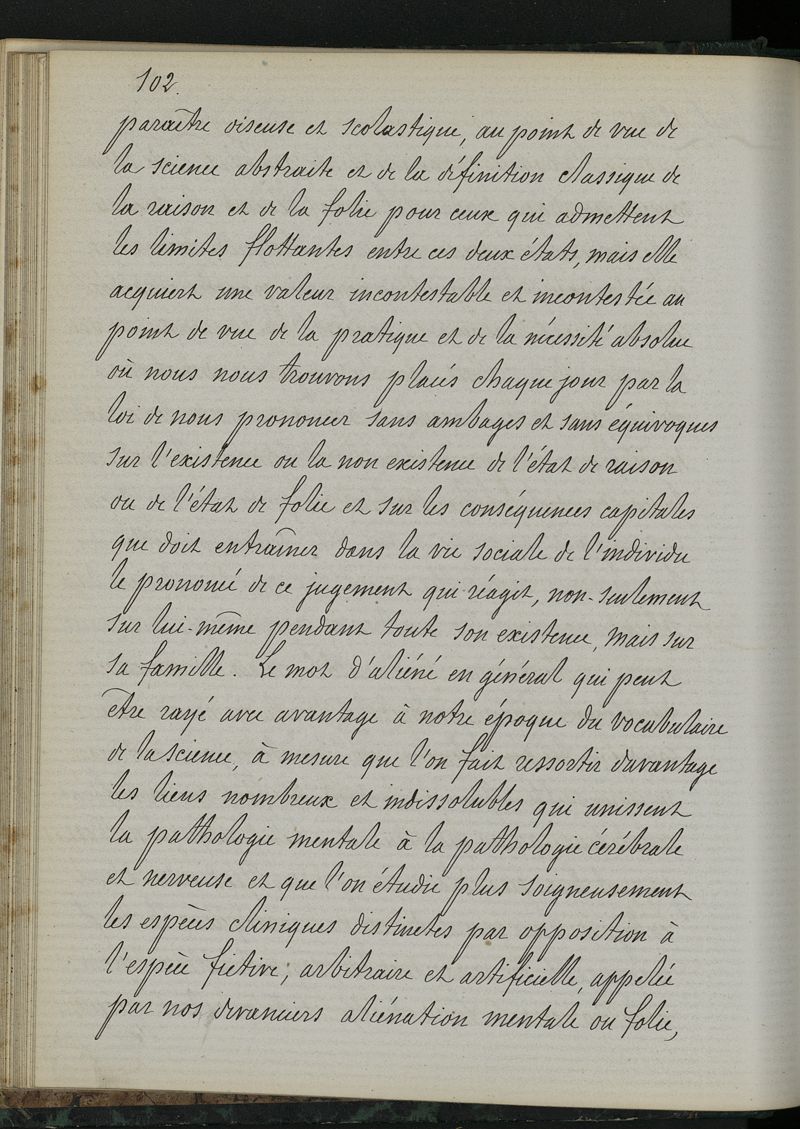 102.
paraître oiseuse et scolastique, au point de vue de
la science abstraite et de la définition classique de
la raison et de la folie pour ceux qui admettent
les limites flottantes entre ces deux états, mais elle
acquiert une valeur incontestable et incontestée au
point de vue de la pratique et de la nécessité absolue
où nous nous trouvons placés chaque jour par la
loi de nous prononcer sans ambages et sans équivoques
sur l'existence ou la non existence de l'état de raison
ou de l'état de folie et sur les conséquences capitales
que doit entraîner dans la vie sociale de l'individu
le prononcé de ce jugement qui réagit, non-seulement
sur lui-même pendant toute son existence, mais sur
sa famille. Le mot d'aliéné en général qui peut
être rayé avec avantage à notre époque du vocabulaire
de la science, à mesure que l'on fait ressortir davantage
les liens nombreux et indissolubles qui unissent
la pathologie mentale à la pathologie cérébrale
et nerveuse et que l'on étudie plus soigneusement
les espèces cliniques distinctes par opposition à
l'espèce fictive, arbitraire et artificielle, appelée
par nos devanciers aliénation mentale ou folie,